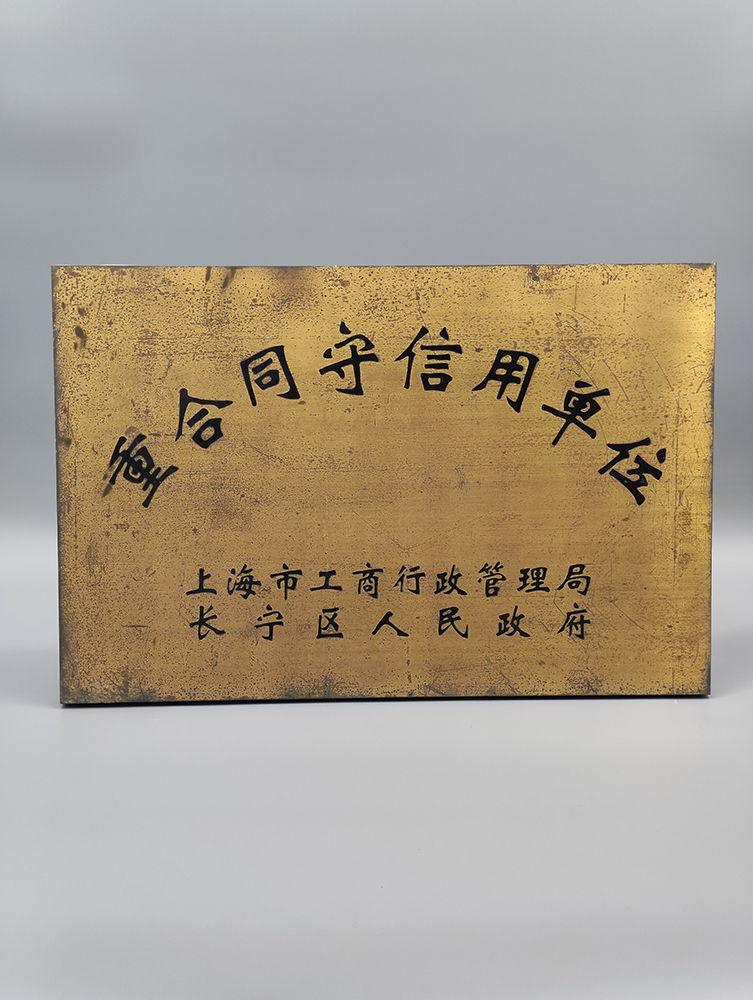 重合同守信用单位
上海市工商行政管理局
长宁区人民政府